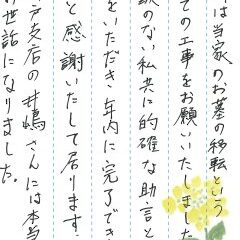 は当家のお墓の移転という
ての工事をお願いいたしました
のない私共に的確な助言と
をいただき年内に完了でき
と感謝いたして居ります。
戸支店の井嶋さんには本当
世話になりました。